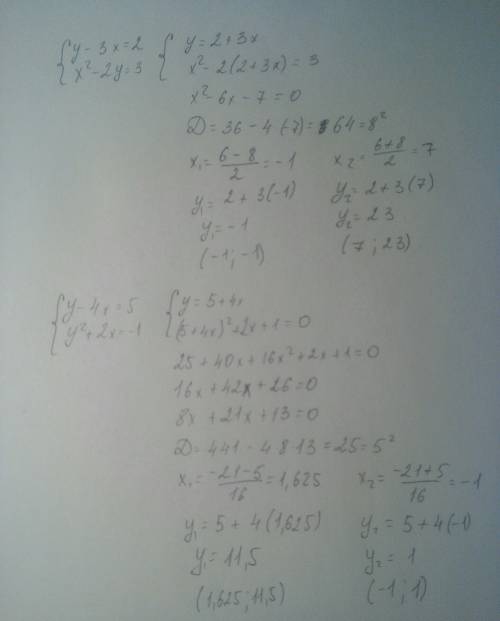 {y-3x=2 {y=2+3x
x²-2y=3 x²-2(2+3x)=3
x²-6x-7=0
D=36-4(-7)=64=8²
x₁=(6-8)/2=-1 x₂=(6+8)/2=7
y₁=2+3(-1) y₂=2+3(7)
y₁=-1 y₂=23
(-1;-1) (7;23)
{y-4x=5 {y=5+4x
y²+2x=-1 (5+4x)²+2x+1=0
25+40x+16x²+2x+1=0
16x+42x+26=0
8x+21x+13=0
D=441-4 8 13=25=5²
x₁=(-21-5)/16=1,625 x₂=(-21+5)/16=-1
y₁=5+4(1,625) y₂=5+4(-1)
y₁=11,5 y₂=1
(1,625;11,5) (-1;1)